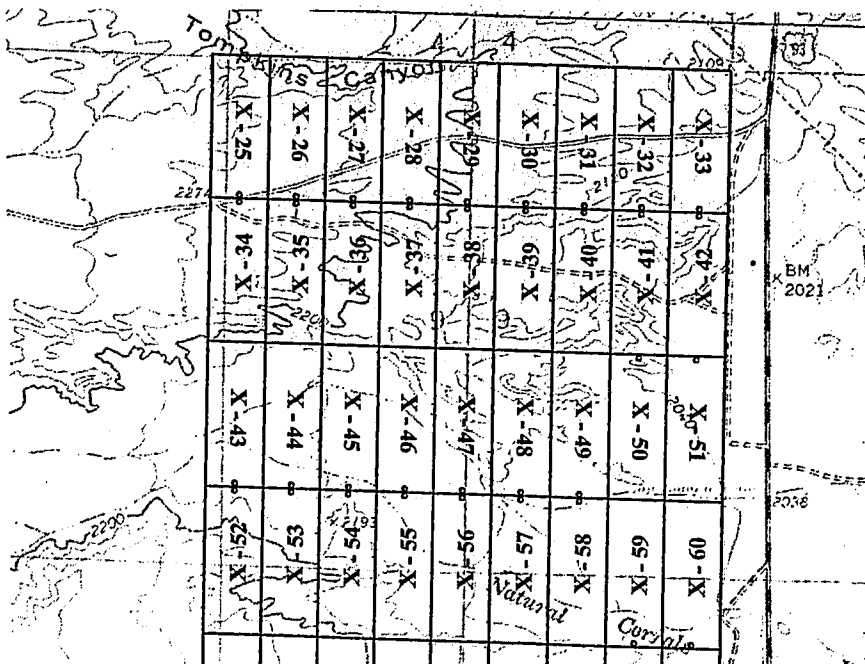 Tompkins Canyon
4
4
93
2109
X-25
X-26
X-27
X-28
X-29
X-30
X-31
X-32
X-33
2110
2274
X-34
X-35
X-36
X-37
X-38
X-39
X-40
X-41
X-42
BM
2021
2200
X-43
X-44
X-45
X-46
X-47
X-48
X-49
X-50
X-51
2040
2038
2200
2193
X-52
X-53
X-54
X-55
X-56
X-57
X-58
X-59
X-60
Natural
Corrals